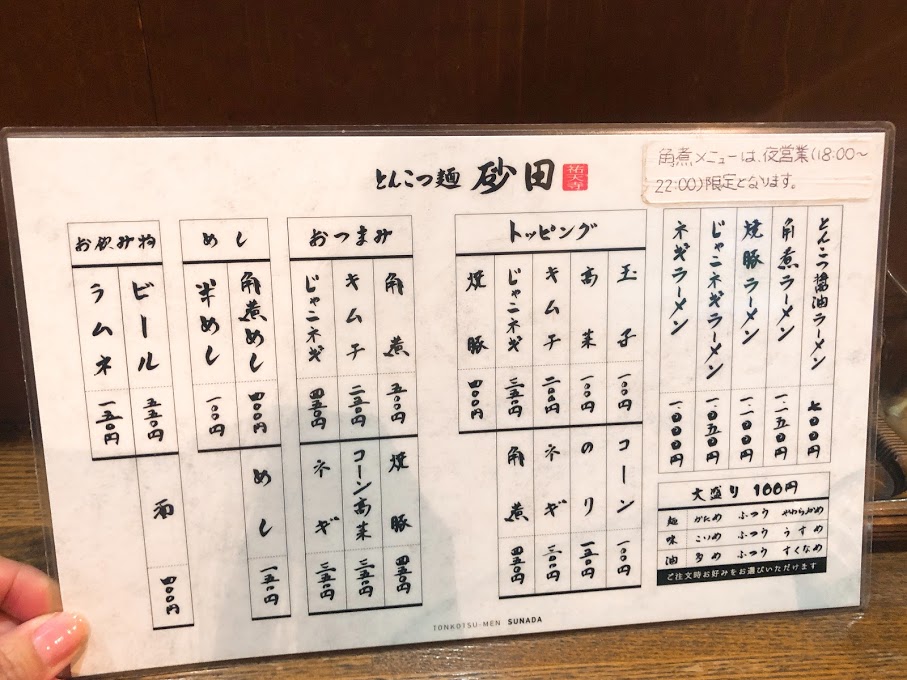 とんこつ麺 砂田
祐天寺
角煮メニューは、夜営業(18:00〜
22:00)限定となります。
とんこつ醤油ラーメン 七〇〇円
角煮ラーメン 一、一五〇円
焼豚ラーメン 一、一〇〇円
じゃこネギラーメン 一、〇五〇円
ネギラーメン 一、〇〇〇円
大盛り 100円
麺 かため ふつう やわらかめ
味 こいめ ふつう うすめ
油 多め ふつう すくなめ
ご注文時お好みをお選びいただけます
トッピング
玉子 一〇〇円
高菜 一〇〇円
キムチ 二〇〇円
じゃこネギ 三五〇円
焼豚 四〇〇円
コーン 一〇〇円
のり 一五〇円
ネギ 三〇〇円
角煮 四五〇円
おつまみ
角煮 五〇〇円
キムチ 二五〇円
じゃこネギ 四五〇円
焼豚 四五〇円
コーン高菜 三五〇円
ネギ 三五〇円
めし
角煮めし 四〇〇円
半めし 一〇〇円
めし 一五〇円
お飲み物
ビール 五五〇円
ラムネ 一五〇円
酒 四〇〇円
TONKOTSU-MEN SUNADA